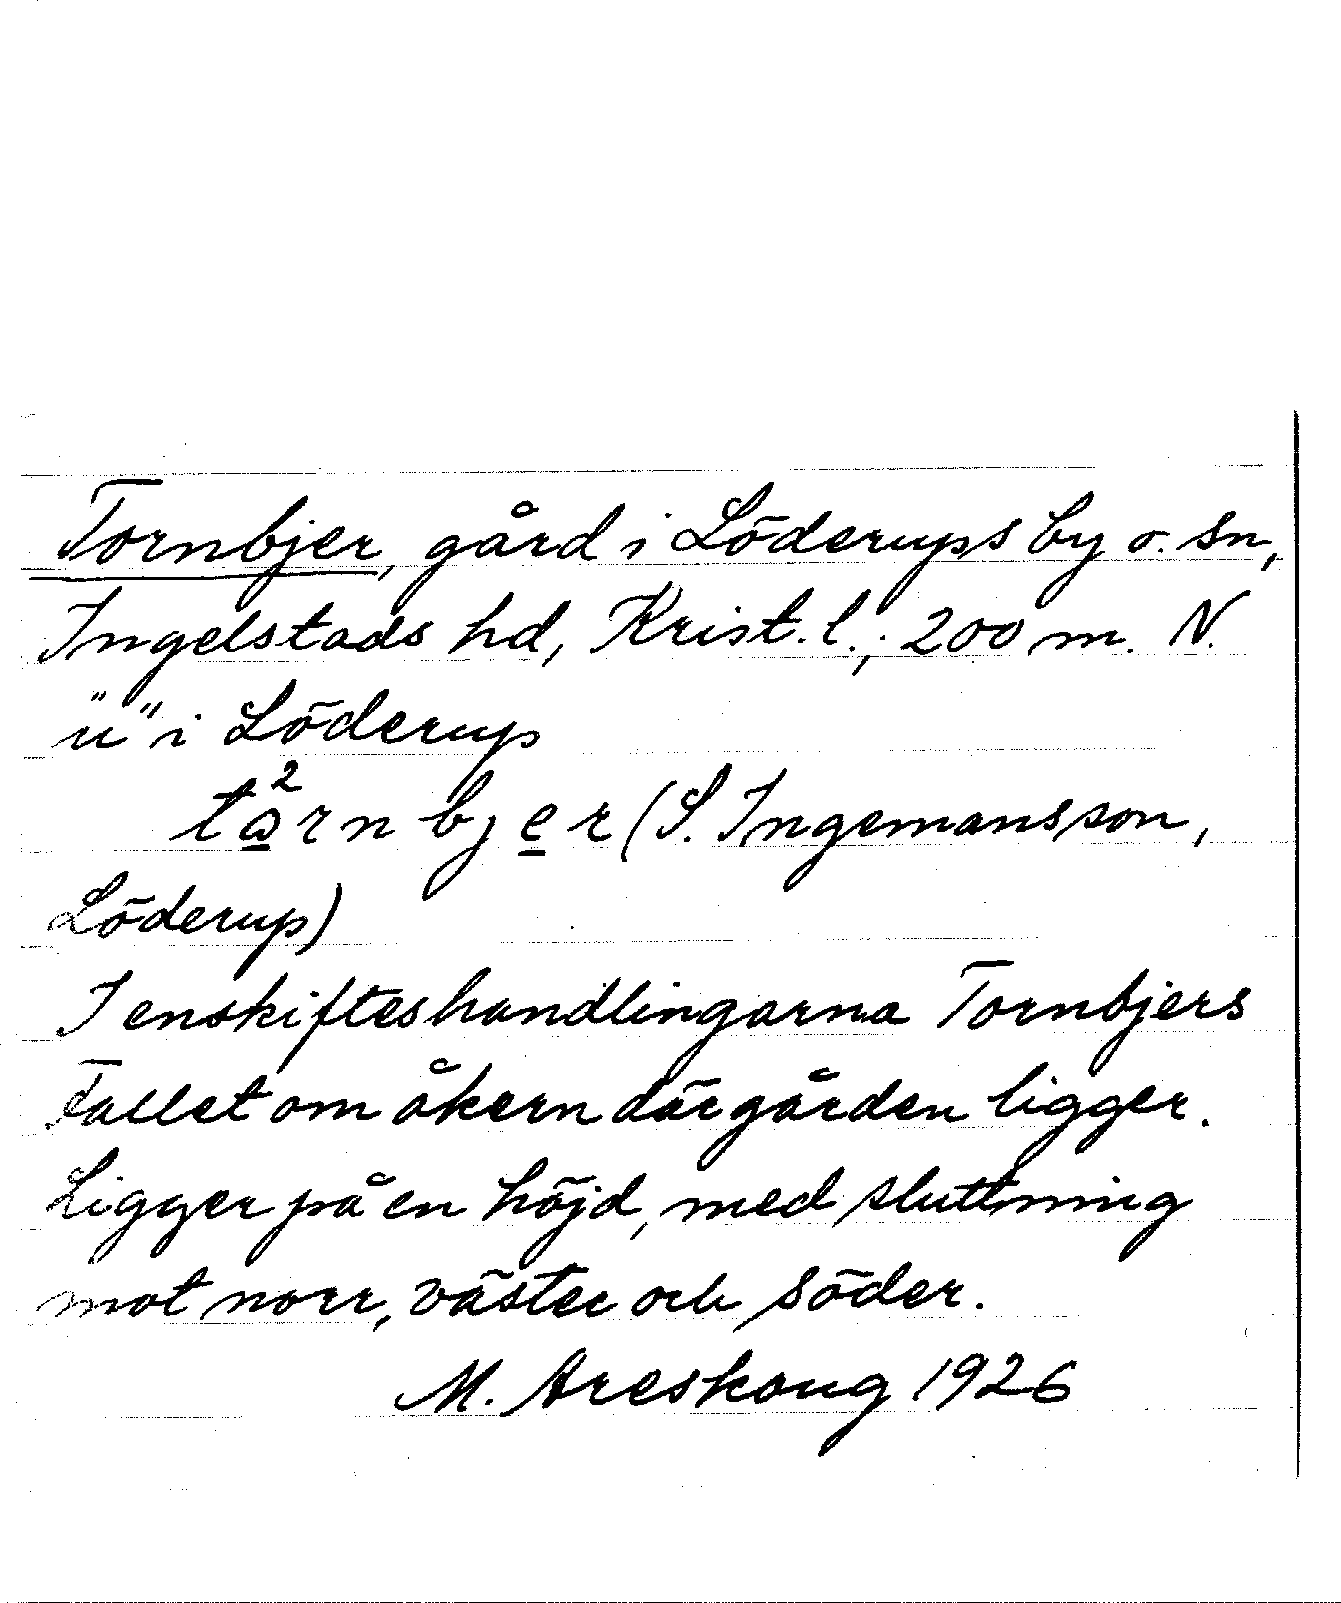 Tornbjer, gård i Löderups by o. sn,
Ingelstads hd, Krist. l.; 200 m. N.
"u" i Löderup
tå²rn bjer (S. Ingemansson,
Löderup)
I enskifteshandlingarna Tornbjers
Fallet om åkern där gården ligger.
Ligger på en höjd, med sluttning
mot norr, väster och söder.
M. Areskoug 1926